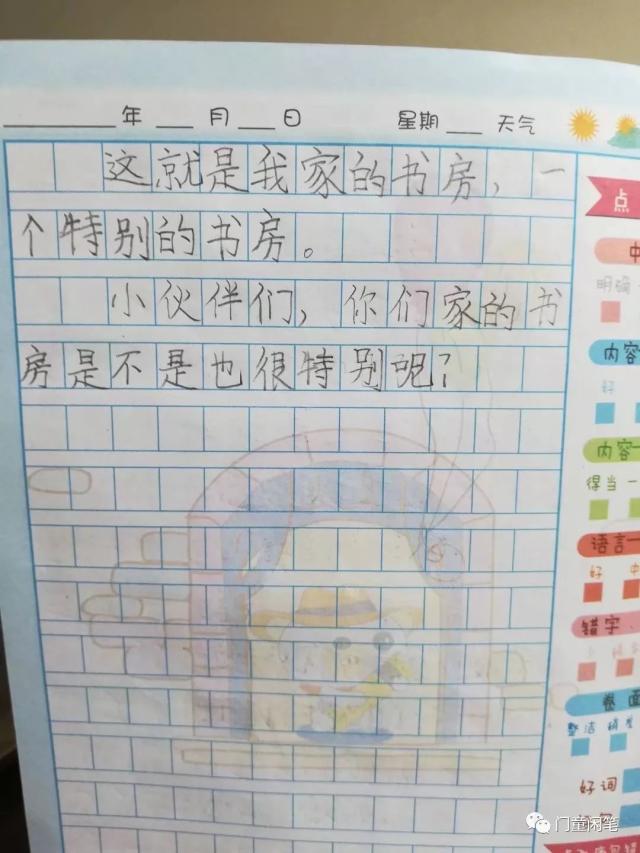 年 月 日 星期 天气
这就是我家的书房,一
个特别的书房。
小伙伴们,你们家的书
房是不是也很特别呢?
点
中
明确
内容
好
内容一
得当 一
语言一
好 中
错字、
卷面
整洁
好词
门童闲笔